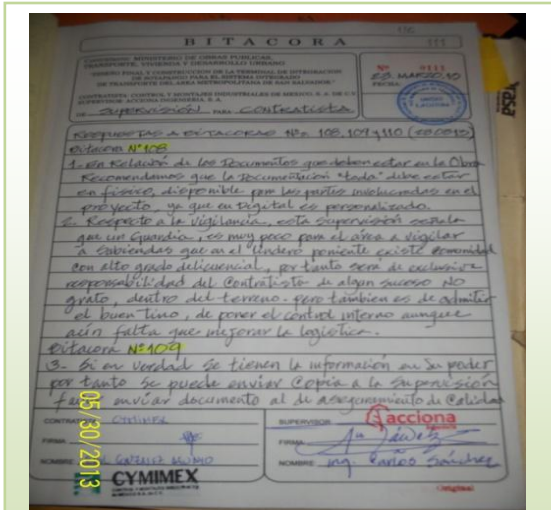 BITACORA
111
CONTRATANTE: MINISTERIO DE OBRAS PUBLICAS,
TRANSPORTE, VIVIENDA Y DESARROLLO URBANO
"DISEÑO FINAL Y CONSTRUCCION DE LA TERMINAL DE INTEGRACION
DE SOYAPANGO PARA EL SISTEMA INTEGRADO
DE TRANSPORTE DEL AREA METROPOLITANA DE SAN SALVADOR."
CONTRATISTA: CONTROL Y MONTAJES INDUSTRIALES DE MEXICO, S. A. DE C.V.
SUPERVISOR: ACCIONA INGENIERIA, S. A.
Nº 0111
FECHA:
DE Supervisión PARA Contratista
Respuestas a Bitacoras Nºs 108, 109 y 110
Bitacora Nº108
1- En Relación de los Documentos que deben estar en la Obra
Recomendamos que la Documentación "toda" debe estar
en fisico, disponible para las partes involucradas en el
proyecto, ya que en Digital es personalizado.
2. Respecto a la vigilancia, esta Supervisión señala
que un Guardia, es muy poco para el área a vigilar
a sabiendas que en el lindero poniente existe Comunidad
con alto grado delicuencial, por tanto sera de exclusiva
responsabilidad del Contratista de algun suceso NO
grato, dentro del terreno. pero tambien es de admitir
el buen tino, de poner el control interno aunque
aún falta que mejorar la logistica.
Bitacora Nº109
3- Si en verdad se tienen la información en su poder
por tanto se puede enviar Copia a la Supervisión
para enviar documento al de aseguramiento de Calidad
CONTRATISTA CYMIMEX
SUPERVISOR acciona
FIRMA
FIRMA
NOMBRE
NOMBRE Ing. Carlos Sánchez
CYMIMEX
Original
05/30/2013